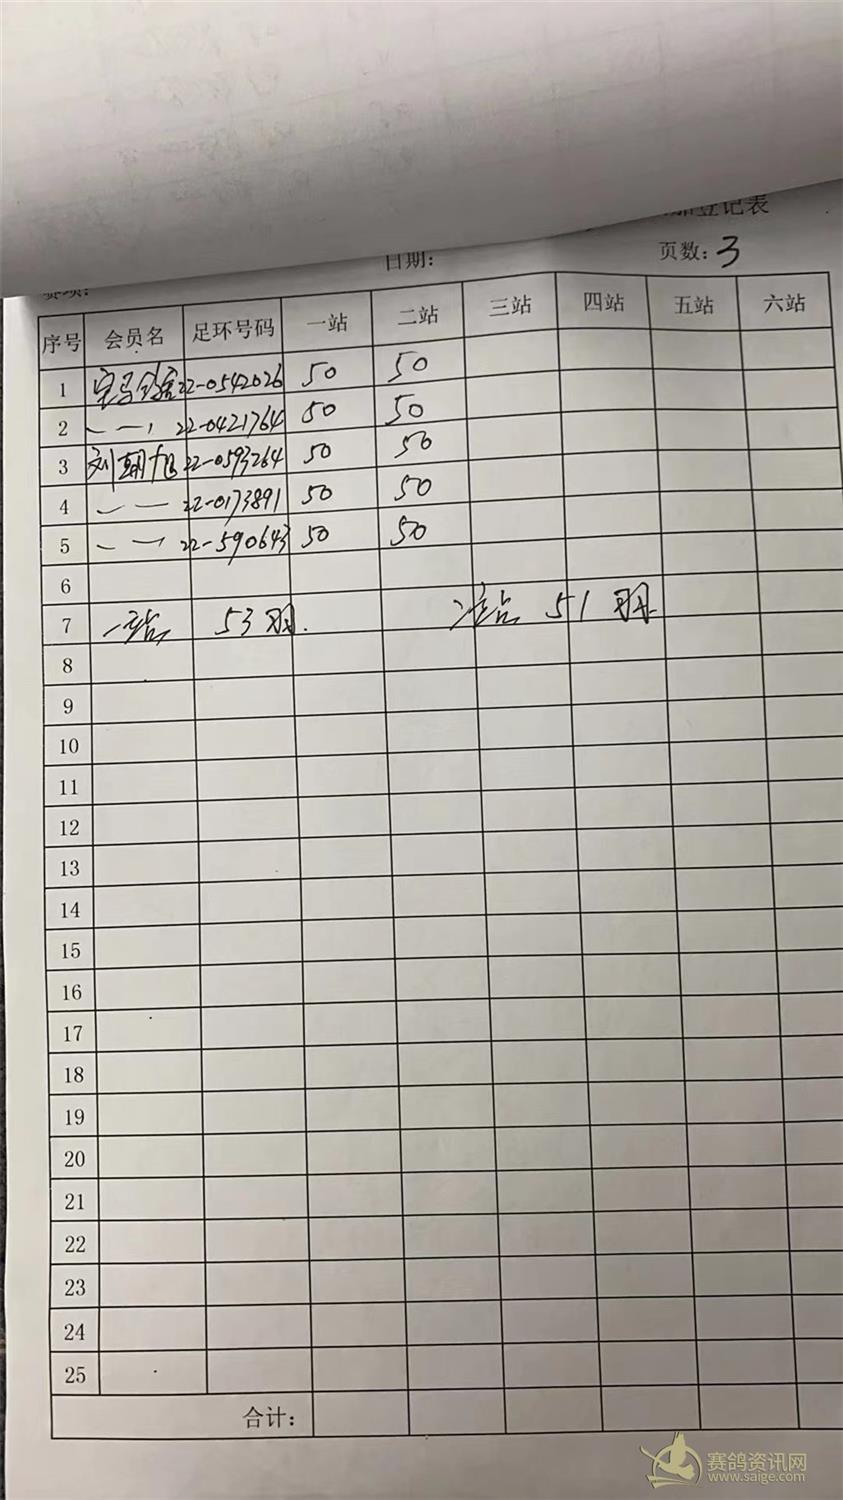 登记表
日期： 页数：3
赛项：
序号 会员名 足环号码 一站 二站 三站 四站 五站 六站
1 宝马 22-0542026 50 50
2 〃 22-0421764 50 50
3 刘朝旭 22-0593264 50 50
4 〃 22-0173891 50 50
5 〃 22-590643 50 50
6
7 一站 53羽. 二站 51羽.
8
9
10
11
12
13
14
15
16
17
18
19
20
21
22
23
24
25
合计：
赛鸽资讯网
www.saige.com